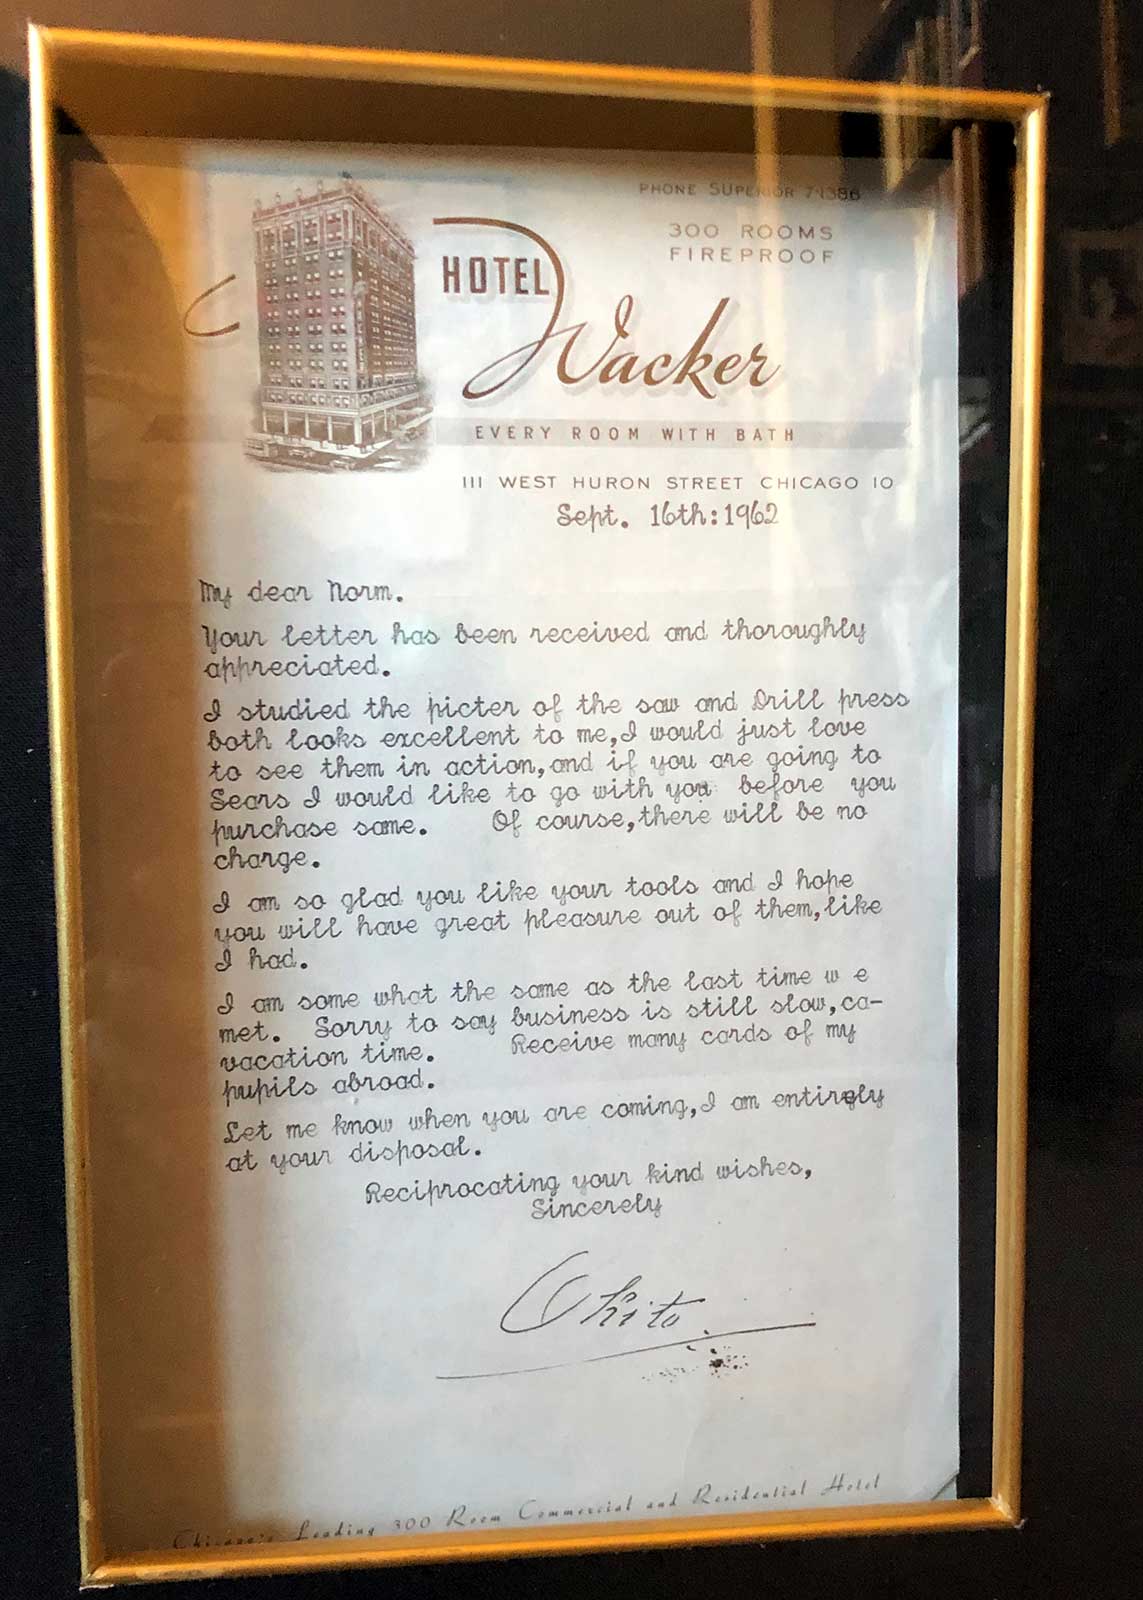 PHONE SUPERIOR 7-1386
300 ROOMS
FIREPROOF
HOTEL
Wacker
EVERY ROOM WITH BATH
111 WEST HURON STREET CHICAGO 10
Sept. 16th:1962
My dear Norm.
Your letter has been received and thoroughly
appreciated.
I studied the picter of the saw and Drill press
both looks excellent to me,I would just love
to see them in action,and if you are going to
Sears I would like to go with you before you
purchase same. Of course,there will be no
charge.
I am so glad you like your tools and I hope
you will have great pleasure out of them,like
I had.
I am some what the same as the last time w e
met. Sorry to say business is still slow,ca-
vacation time. Receive many cards of my
pupils abroad.
Let me know when you are coming,I am entirely
at your disposal.
Reciprocating your kind wishes,
Sincerely
Okito
Chicago's Leading 300 Room Commercial and Residential Hotel